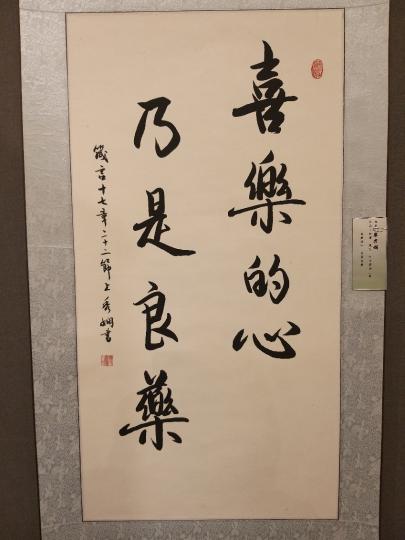 喜樂的心
乃是良藥
箴言十七章二十二節上秀姍書